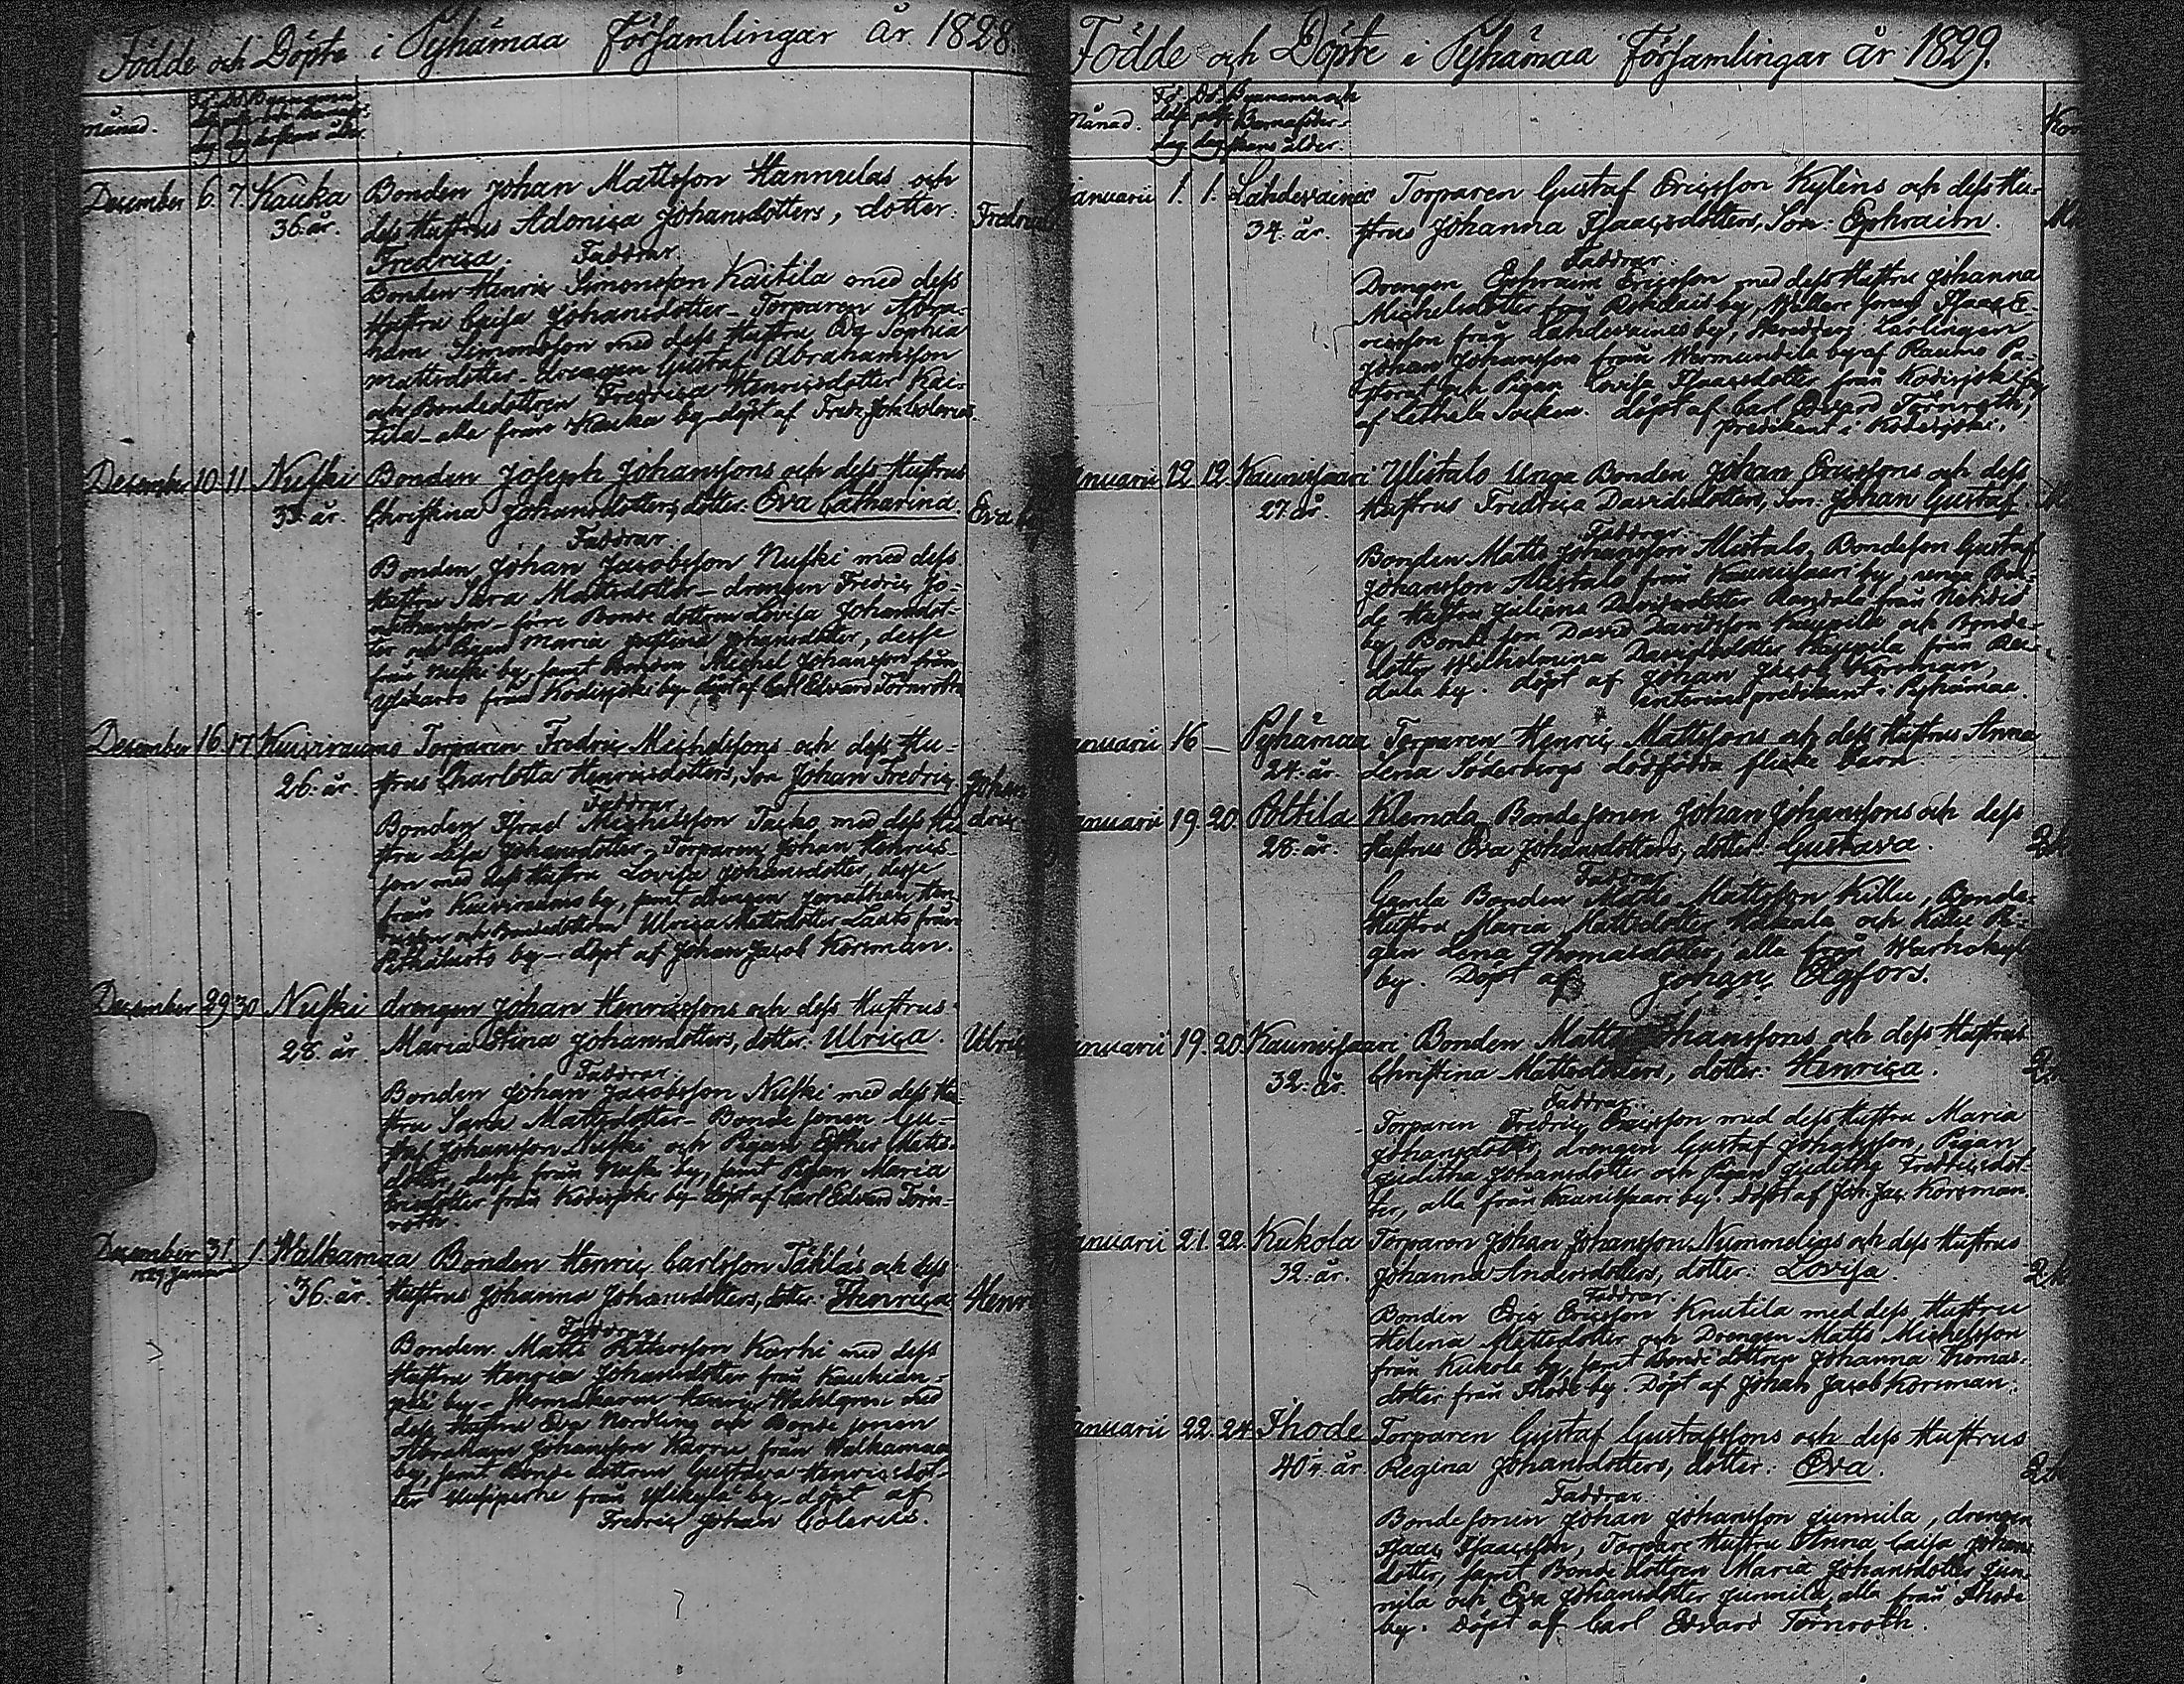 Födde och Döpte i Pyhämaa Församlingar År 1828.
månad.
December 6. 7. Kauka Bonden Johan Mattsson Hannulas och
36. år. dess Hustrus Adoniça Johansdotters, dotter:
Fredriça. Faddrar. Fredrica
Bonden Henric Simonsson Kaitila med dess
Hustru Caisa Johansdotter – Torparen Abra-
ham Simonsson med dess Hustru Sophia
Mattsdotter – drengen Gustaf Abrahamsson
och Bondedottren Fredrica Henricsdotter Kai-
tila – alla från Kauka by – döpt af Fredr. Joh. Colerus.
December 10 11 Nuski Bonden Joseph Johanssons och dess Hustrus
år. Christina Johansdotters, dotter: Eva Catharina. Eva
Faddrar.
Bonden Johan Jacobsson Nuski med dess
Hustru Sara Mattsdotter – drengen Fredric Jo-
Bonde dottren Lovisa Johansdot-
ter och Pigan Maria Johansdotter, desse
från Nuski by, samt Michel Johansson från
från Kodisjoki by – döpt af Carl Edvard Törnroth
December 16 17 Kuivirauma Torparen Fredric Michelssons och dess Hu-
26. år. strus Charlotta Henricsdotters, Son Johan Fredric Johan
Faddrar dric
Bonden Israel Michelsson med dess Hu-
stru Lisa Johansdotter – Torparen Johan Henrics-
son med dess Hustru Lovisa Johansdotter, desse
från Kuivirauma by, samt drengen Jonathan Hen-
ricsson och Bondedottren Ulrica Mattsdotter från
by – döpt af Johan Jacob Korsman.
December 29 30 Nuski drengen Johan Henricssons och dess Hustrus
28. år. Maria Stina Johansdotters, dotter: Ulriça. Ulric
Faddrar.
Bonden Johan Jacobsson Nuski med dess Hu-
stru Sara Mattsdotter – Bonde sonen Gu-
staf Johansson Nuski och Pigan Esther Matts-
dotter, desse från Nuski by, samt Pigan Maria
Ericsdotter från Kodisjoki by – döpt af Carl Edvard Törn-
roth.
December 31 1 Walkamaa Bonden Henric Carlsson Täkläs och dess
1829 Januar
36. år. Hustrus Johanna Johansdotters, dotter: Henrica Henr
Faddrar.
Bonden Matts Karhi med dess
Hustru Henrica Johansdotter från Kaukian-
pää by – Henric Wahlgren med
dess Hustru Eva Nordling och Bonde sonen
Abraham Johansson Karru från Walkamaa
by, samt Bonde dottren Gustava Henricsdot-
ter från Ylikylä by – döpt af
Fredric Johan Colerus.
Födde och Döpte i Pyhämaa Församlingar År 1829.
Månad. Byanamn och
Barnaföder-
dag dag skans ålder.
Januarii 1. 1. Lahdevainio Torparen Gustaf Ericsson Kyléns och dess Hu-
34. år. strus Johanna Isaacsdotters, Son: Ephraim.
Faddrar.
Drengen Ephraim Ericsson med dess Hustru Johanna
Michelsdotter från by, Isaac E-
ricsson från Lahdevainio by, Lärlingen
Johan Johansson från Wermuntila by af Raumo Pa-
storat och Pigan Lovisa Isaacsdotter från Kodisjoki by
af Lethala Socken. döpt af Carl Edvard Törnroth,
predikant i Kodisjoki.
Januarii 12 12. Kaunissaari Ylistalo unga Bonden Johan Ericssons och dess
27. år. Hustrus Fredrica Davidsdotters, Son: Johan Gustaf
Faddrar.
Bonden Matts Johansson Alistalo, Bondeson Gustaf
Johansson Alistalo från Kaunissaari by, unga Bon-
de Hustru Juliana Davidsdotter från
by Bonde son David Davidsson Kauppila och Bonde-
dotter Wilhelmina Davidsdotter Kauppila från
by. döpt af Johan Jacob Korsman,
interims predikant i Pyhämaa.
Januarii 16 – Pyhämaa Torparen Henric Mattssons och dess Hustrus Anna
24. år. Lena Söderbergs dödfödda flicke barn
Januarii 19. 20. Polttila Klemola Bondesonen Johan Johanssons och dess
28. år. Hustrus Eva Johansdotters, dotter: Gustava.
Faddrar
Gamla Bonden Matts Mattsson Killu, Bonde-
Hustru Maria Mattsdotter och Killu Pi-
gan Lena Thomasdotter, alla från Warhokylä
by. Döpt af Johan Elgfors.
Januarii 19. 20. Kaunissaari Bonden Matts Johanssons och dess Hustrus
32. år. Christina Mattsdotters, dotter: Henrica.
Faddrar.
Torparen Fredric Ericsson med dess Hustru Maria
Johansdotter, drengen Gustaf Johansson, Pigan
Juditha Johansdotter och Pigan Juditha Fredricsdot-
ter, alla från Kaunissaari by. döpt af Joh. Jac. Korsman.
Januarii 21. 22. Kukola Torparen Johan Johansson Nummelins och dess Hustrus
32. år. Johanna Andersdotters, dotter: Lovisa.
Faddrar.
Bonden Eric Ericsson Knutila med dess Hustru
Helena Mattsdotter och Drengen Matts Michelsson
från Kukola by, samt Bonde dottren Johanna Thomas-
dotter från Ihode by. Döpt af Johan Jacob Korsman.
Januarii 22. 24. Ihode Torparen Gustaf Gustafssons och dess Hustrus
40. år. Regina Johansdotters, dotter: Eva.
Faddrar
Bonde sonen Johan Johansson Junnila, drengen
Isaac Isaacsson, Torpare Hustru Anna Caisa Johans
dotter, samt Bonde dottren Maria Johansdotter Jun-
nila och Eva Johansdotter Junnila, alla från Ihode
by. Döpt af Carl Edvard Törnroth.